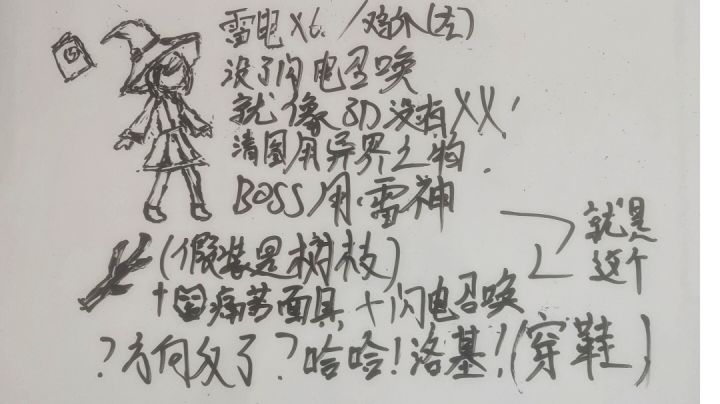 雷电X6. /鸡尔(左)
没了闪电召唤
就像3D没有XX'
清图用异界之物.
BOSS用雷神
就是
这个
(假装是树枝)
+痛苦面具+闪电召唤
?方向反了?哈哈!洛基!(穿鞋)